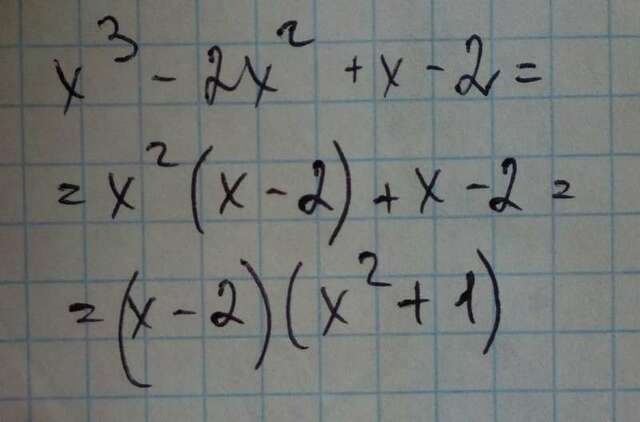 x³ - 2x² + x - 2 =
= x² (x - 2) + x - 2 =
= (x - 2) (x² + 1)